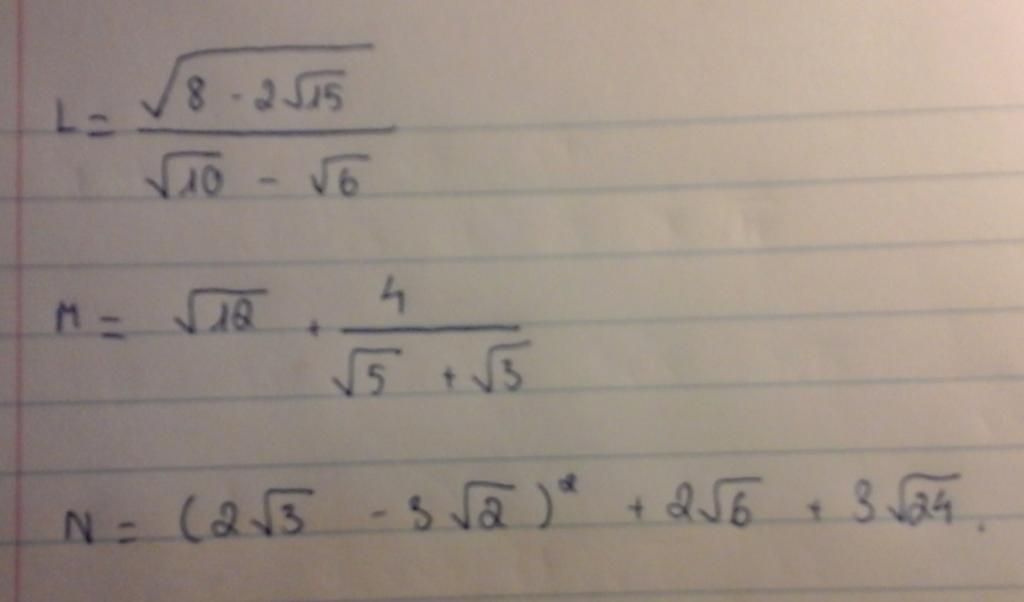 L = \frac{\sqrt{8 - 2\sqrt{15}}}{\sqrt{10} - \sqrt{6}}
M = \sqrt{12} + \frac{4}{\sqrt{5} + \sqrt{3}}
N = (2\sqrt{3} - 3\sqrt{2})^2 + 2\sqrt{6} + 3\sqrt{24}.